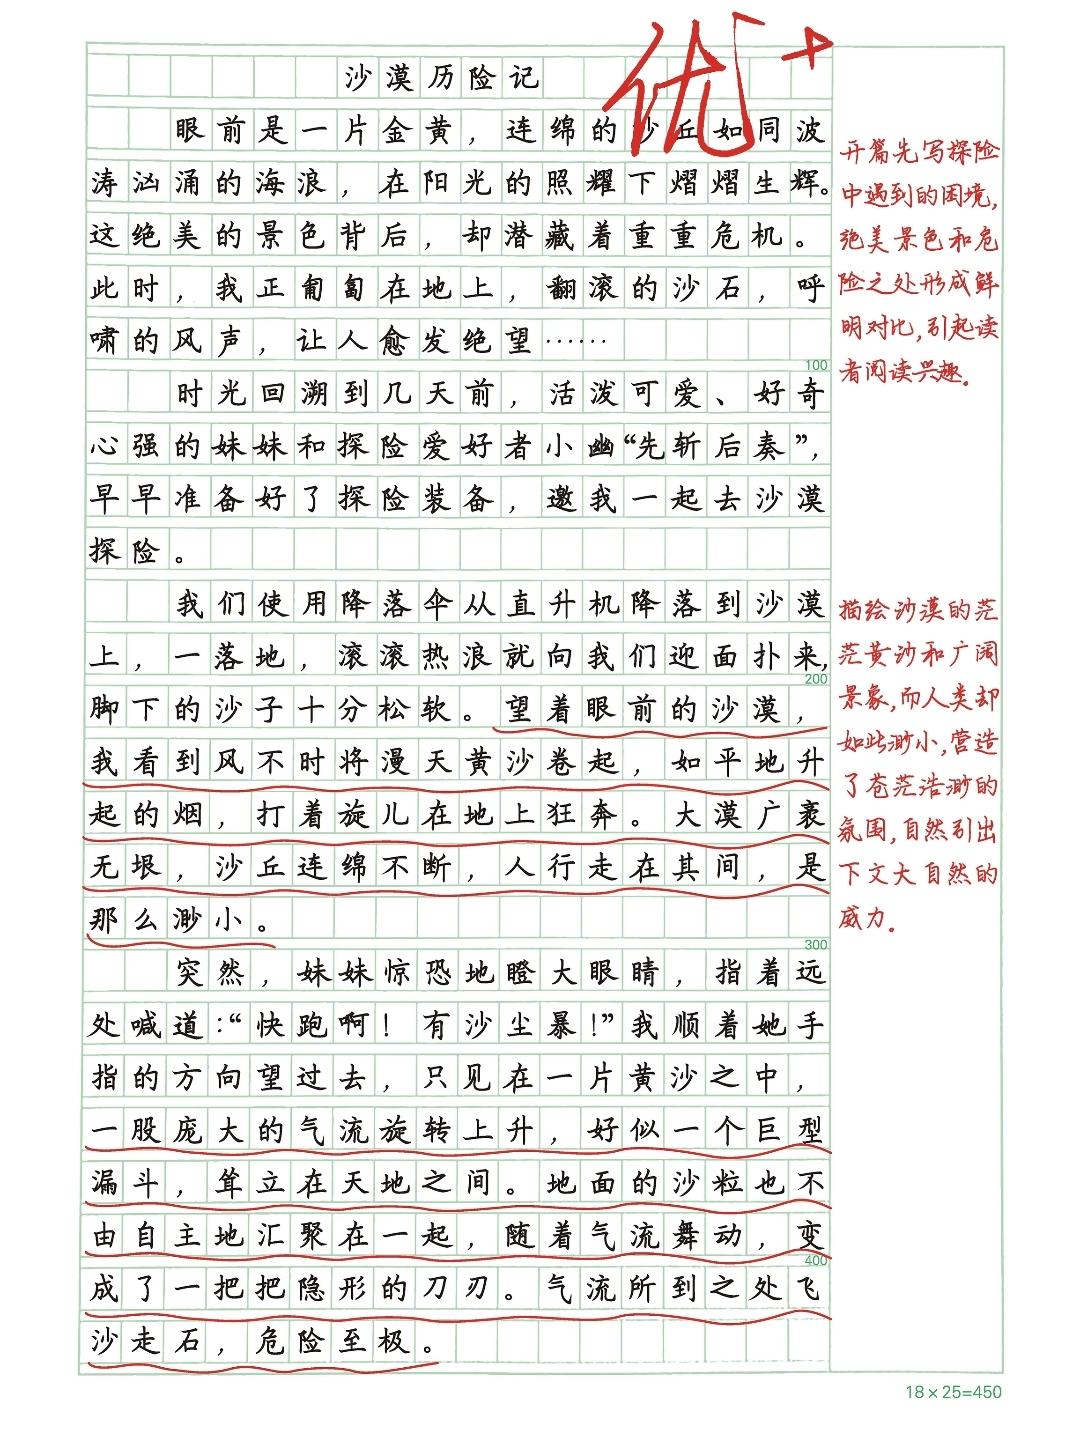 沙漠历险记
优+
眼前是一片金黄，连绵的沙丘如同波
涛汹涌的海浪，在阳光的照耀下熠熠生辉。
这绝美的景色背后，却潜藏着重重危机。
此时，我正匍匐在地上，翻滚的沙石，呼
啸的风声，让人愈发绝望……
100
时光回溯到几天前，活泼可爱、好奇
心强的妹妹和探险爱好者小幽“先斩后奏”，
早早准备好了探险装备，邀我一起去沙漠
探险。
我们使用降落伞从直升机降落到沙漠
上，一落地，滚滚热浪就向我们迎面扑来，
200
脚下的沙子十分松软。望着眼前的沙漠，
我看到风不时将漫天黄沙卷起，如平地升
起的烟，打着旋儿在地上狂奔。大漠广袤
无垠，沙丘连绵不断，人行走在其间，是
那么渺小。
300
突然，妹妹惊恐地瞪大眼睛，指着远
处喊道：“快跑啊！有沙尘暴！”我顺着她手
指的方向望过去，只见在一片黄沙之中，
一股庞大的气流旋转上升，好似一个巨型
漏斗，耸立在天地之间。地面的沙粒也不
由自主地汇聚在一起，随着气流舞动，变
400
成了一把把隐形的刀刃。气流所到之处飞
沙走石，危险至极。
开篇先写探险
中遇到的困境，
绝美景色和危
险之处形成鲜
明对比，引起读
者阅读兴趣。
描绘沙漠的茫
茫黄沙和广阔
景象，而人类却
如此渺小，营造
了苍茫浩渺的
氛围，自然引出
下文大自然的
威力。
18×25=450